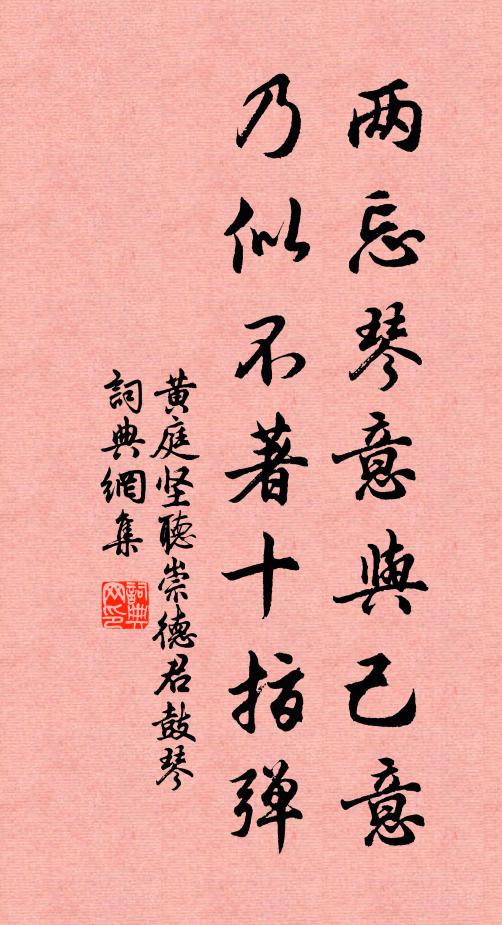 两忘琴意與己意
乃似不著十指弹
黄庭坚聽崇德君鼓琴
詞典網集
詞典网印